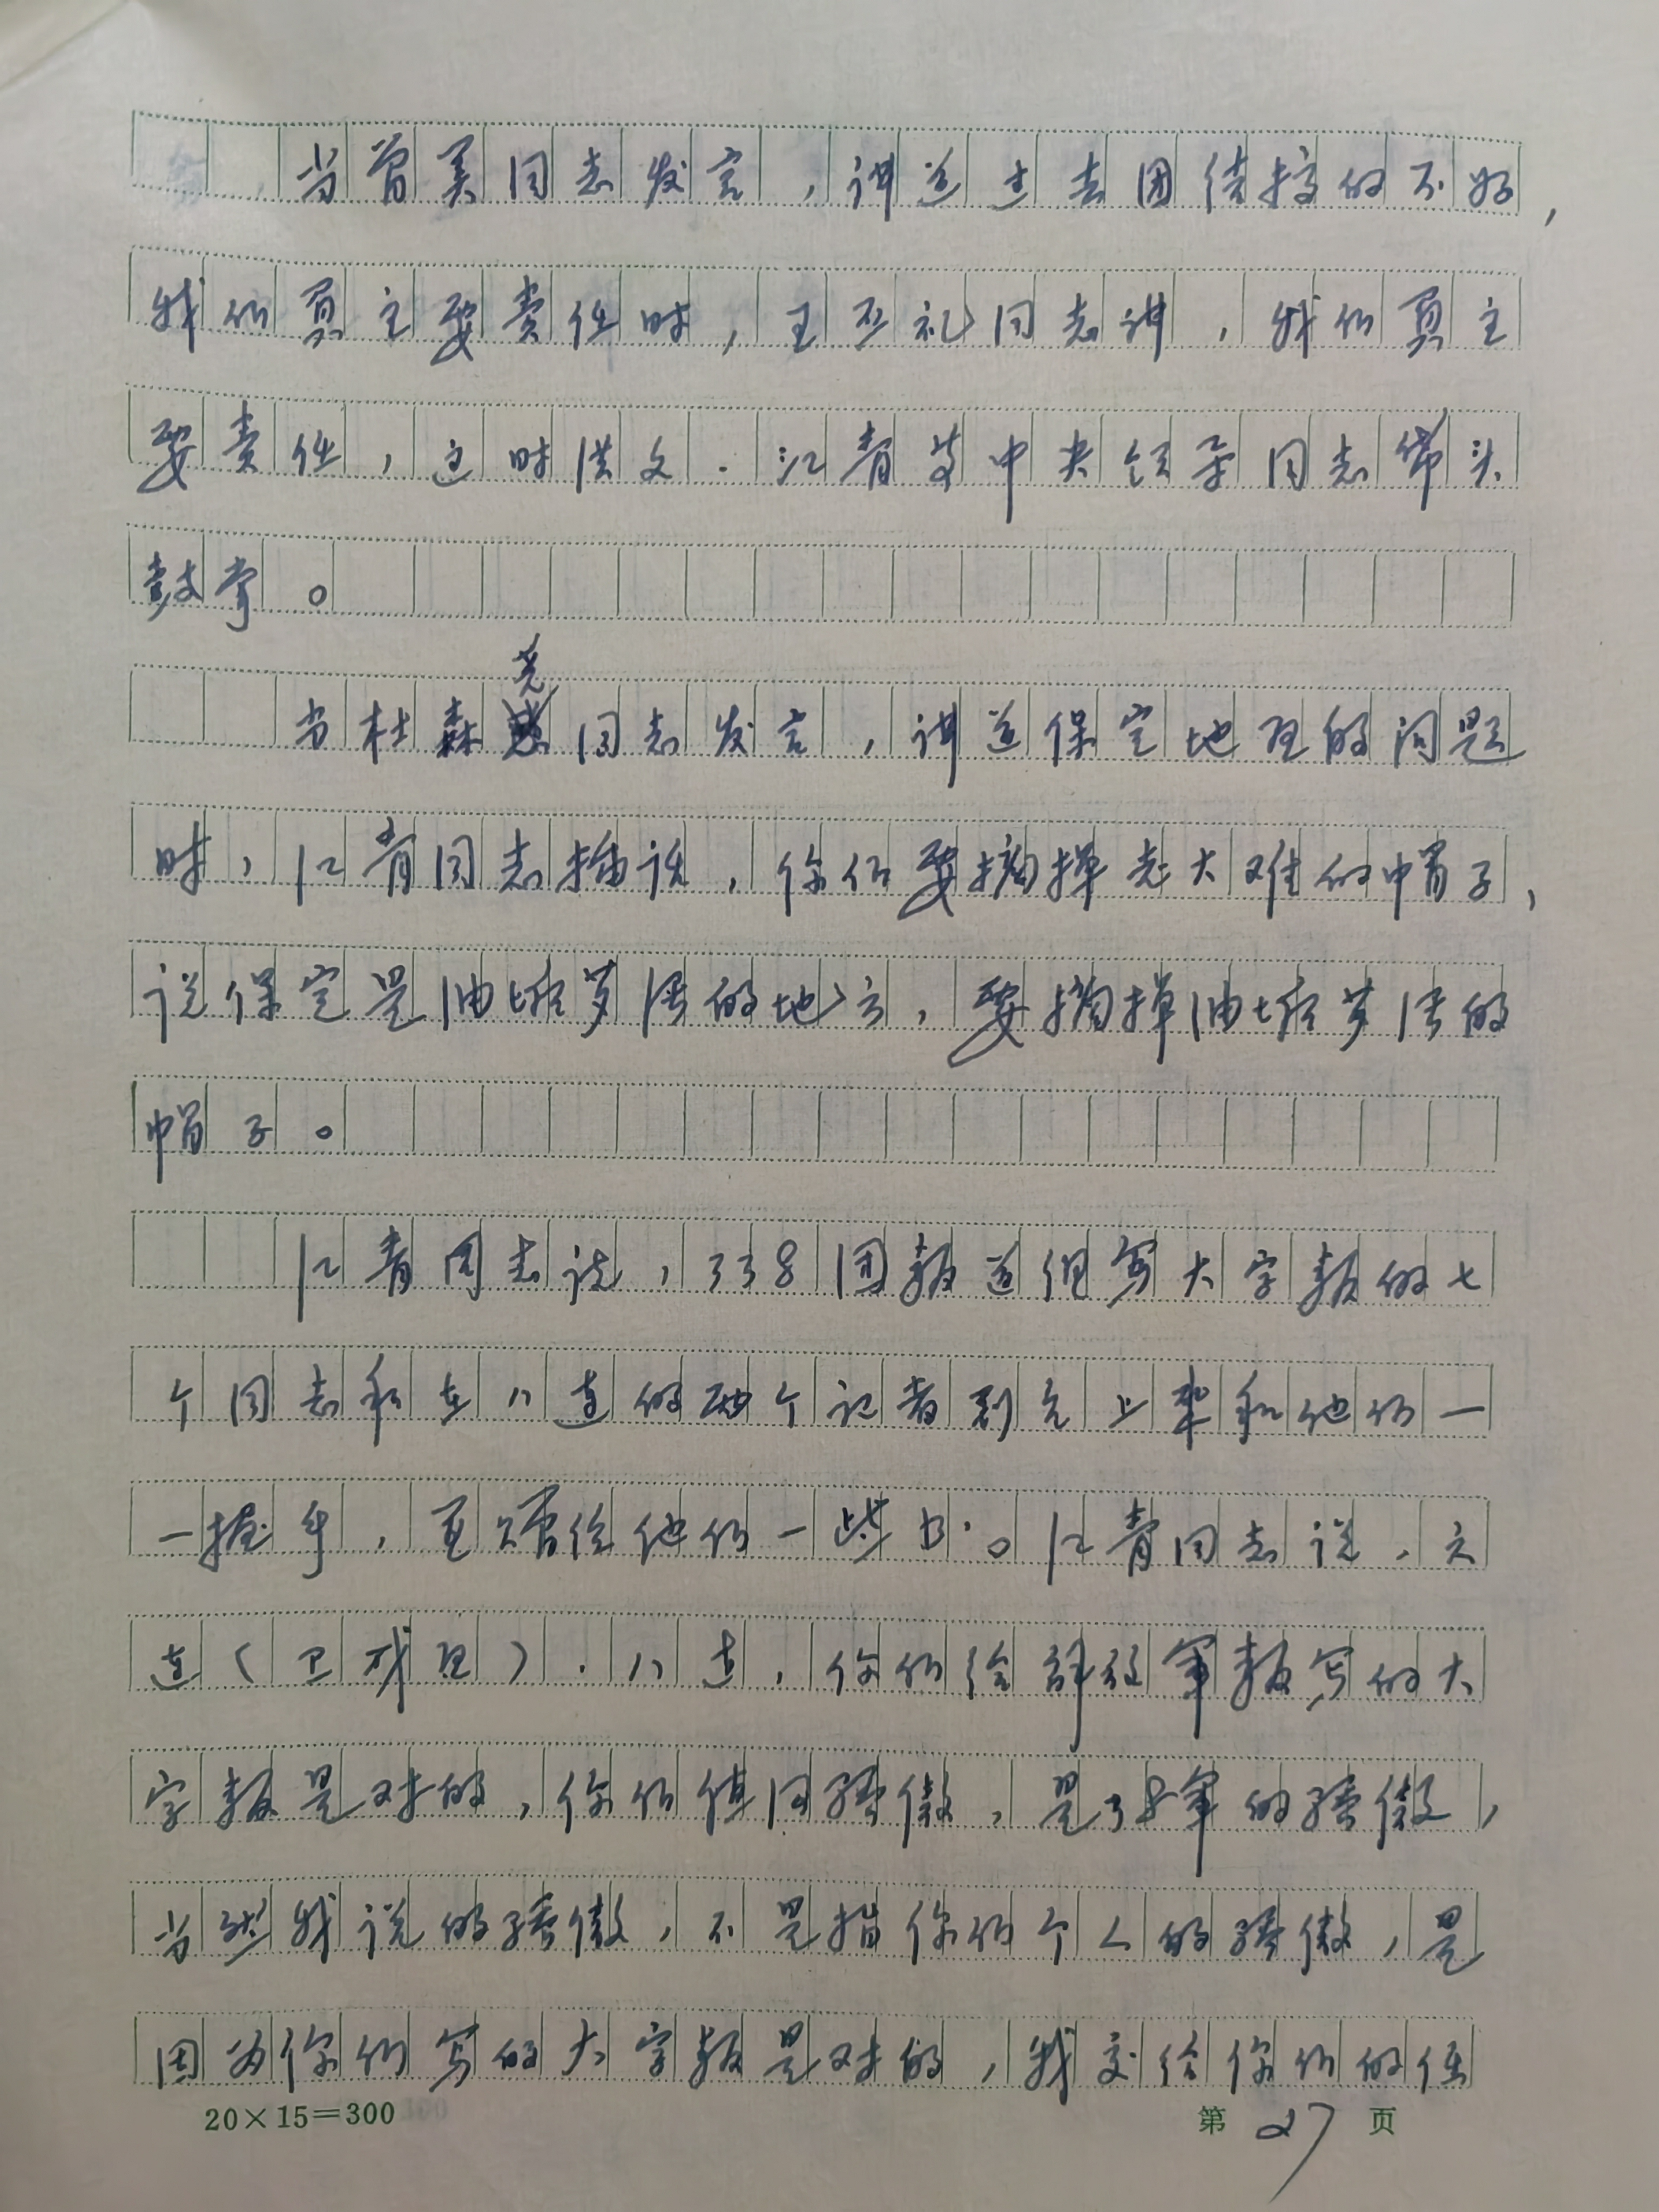 当曾美同志发言，讲道过去团结搞的不好，
我们负主要责任时，王丕礼同志讲，我们负主
要责任，这时洪文．江青等中央领导同志带头
鼓掌。
光
当杜森同志发言，讲道保定地区的问题
时，江青同志插说，你们要摘掉老大难的帽子，
说保定是油垢芦席的地方，要摘掉油垢芦席的
帽子。
江青同志说，338团报道组写大字报的七
个同志和在八连的两个记者到完上来和他们一
一握手，互赠给他们一些书。江青同志说，六
连（卫戍区）．八连，你们给解放军报写的大
字报是对的，你们值得骄傲，是38军的骄傲，
当然我说的骄傲，不是指你们个人的骄傲，是
因为你们写的大字报是对的，我交给你们的任
20×15＝300
第27页